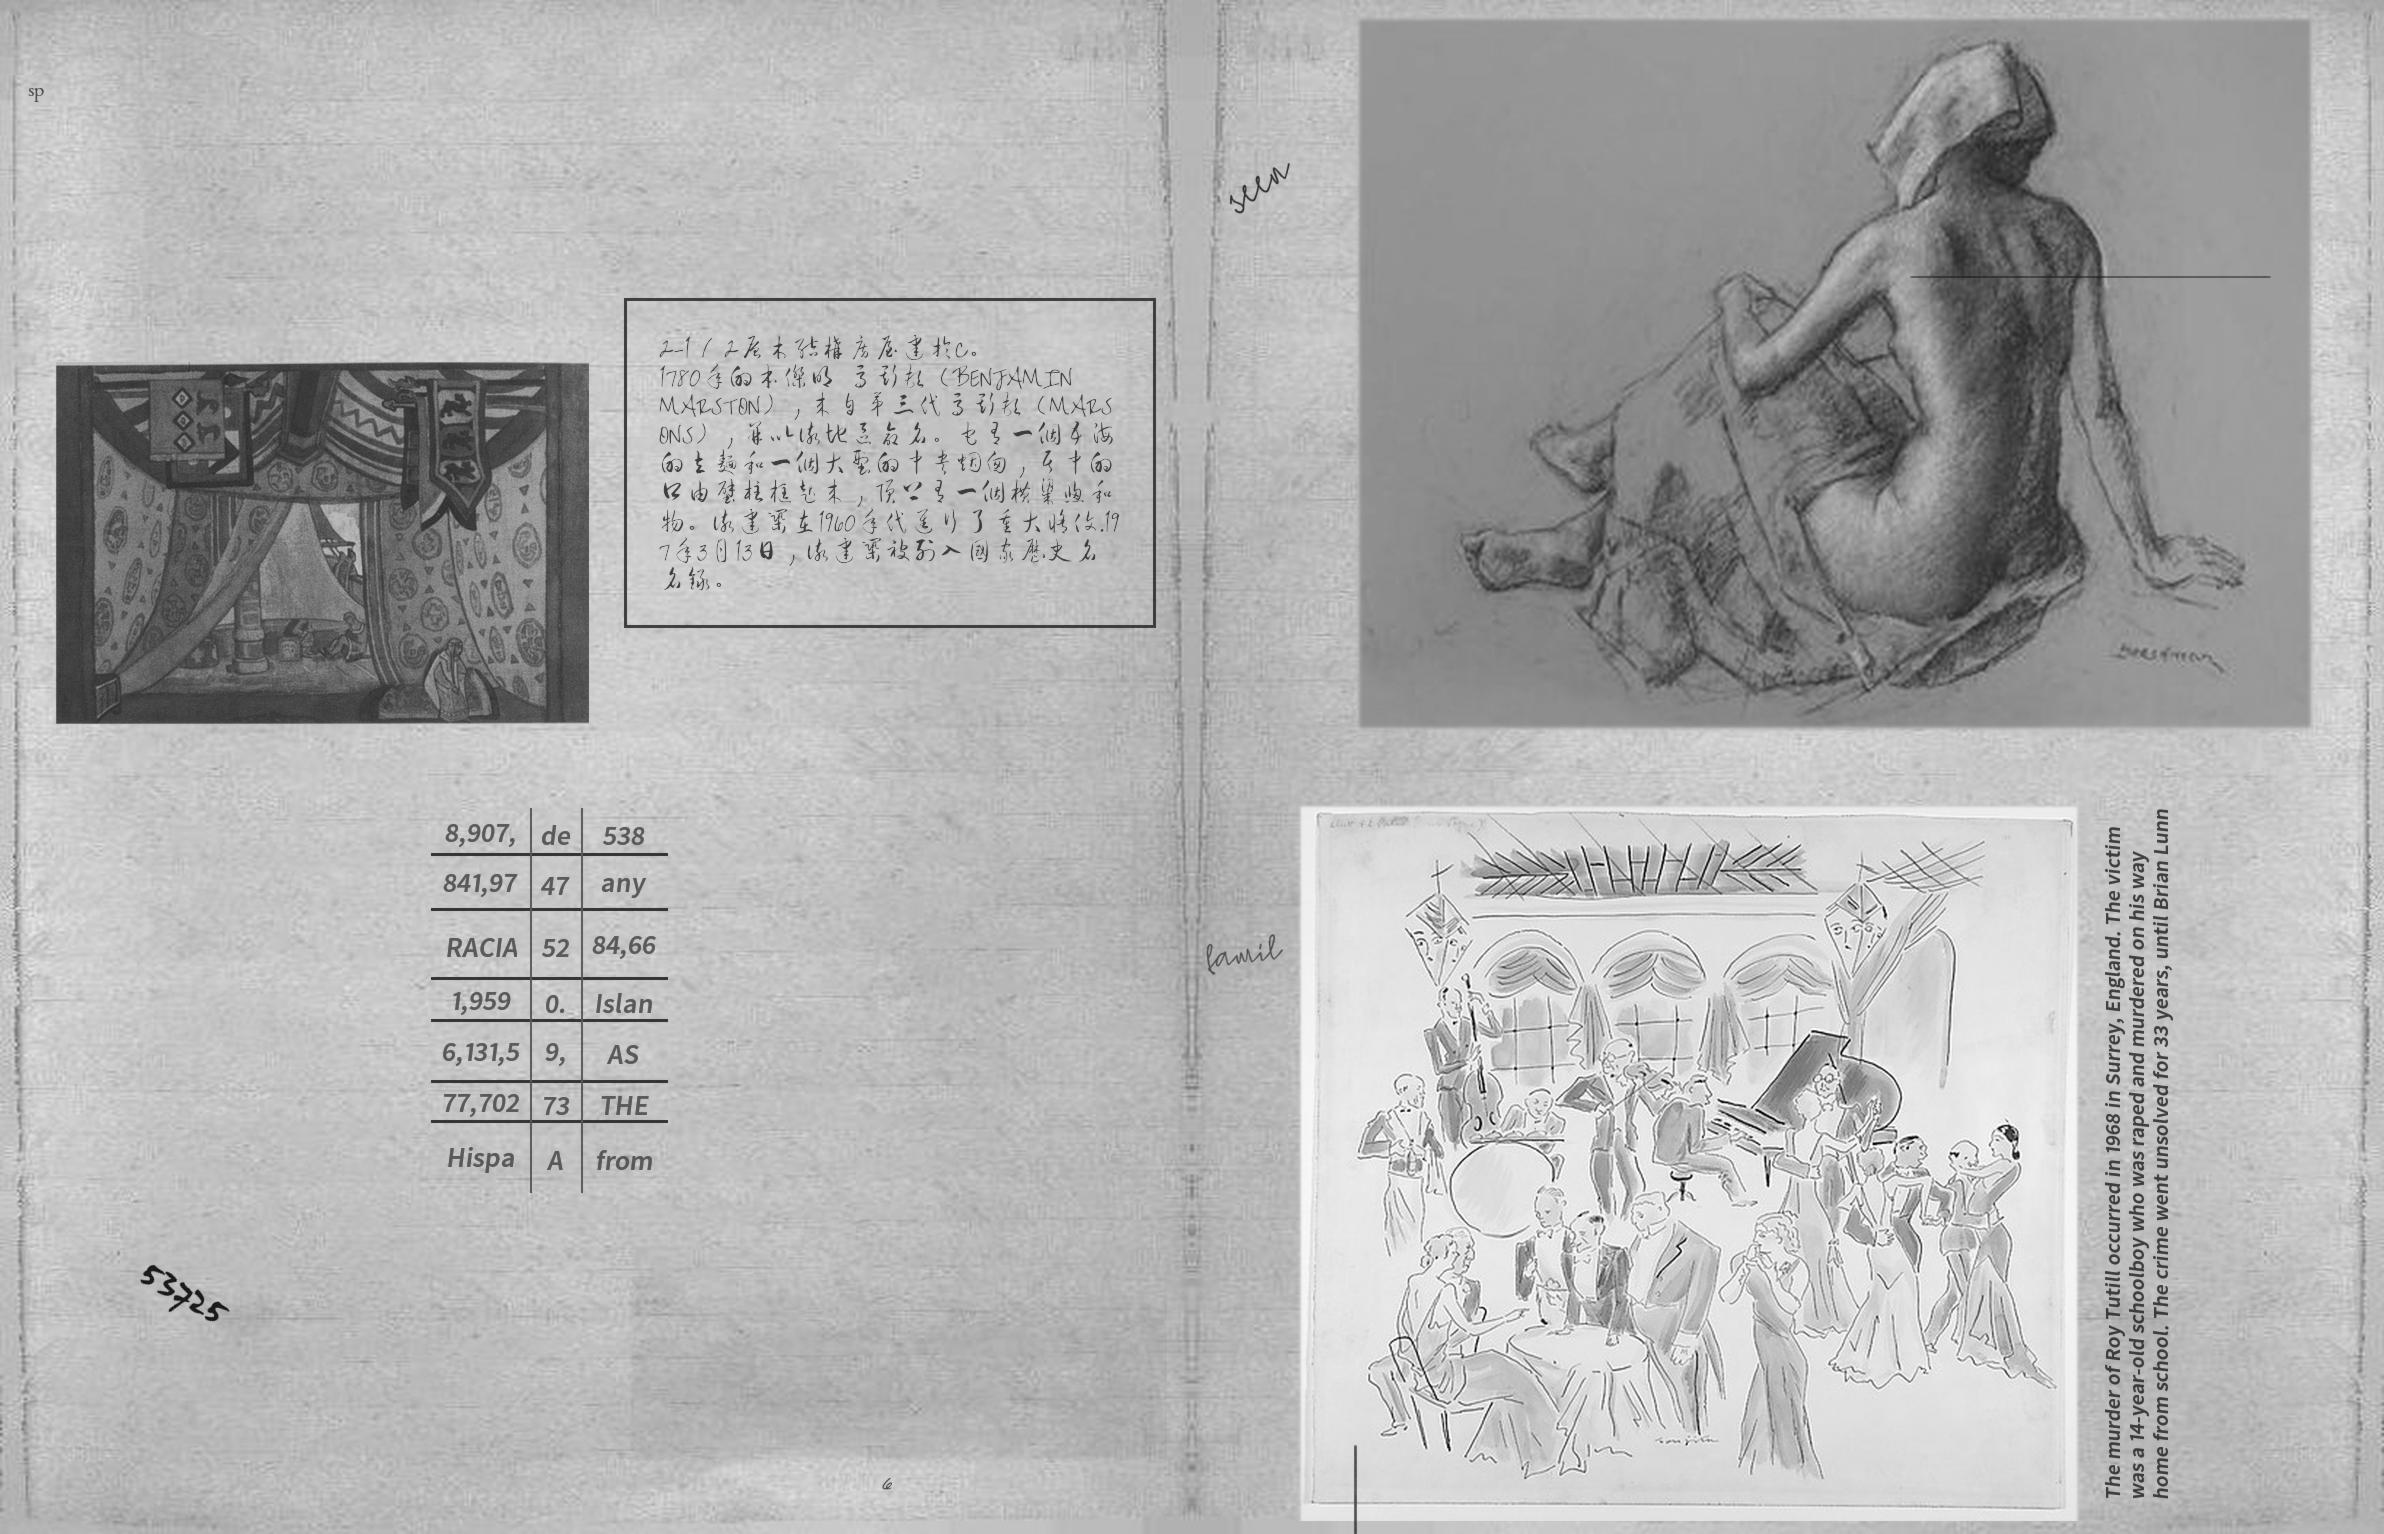 sp
2-1 / 2层木結構房屋建於C。
1780年的本傑明 馬斯頓 (BENJAMIN
MARSTON) ,來自第三代馬斯頓 (MARS
ONS) ,并以該地區命名。它有一個
的立麵和一個大型的中央烟囪,居中的
口由壁柱框起來,頂上有一個橫樑
物。該建築在1960年代進行了重大修
7年3月13日,該建築被列入國家歷史名
名錄。
8,907, de 538
841,97 47 any
RACIA 52 84,66
1,959 0. Islan
6,131,5 9, AS
77,702 73 THE
Hispa A from
53725
6
seen
famil
The murder of Roy Tutill occurred in 1968 in Surrey, England. The victim
was a 14-year-old schoolboy who was raped and murdered on his way
home from school. The crime went unsolved for 33 years, until Brian Lunn